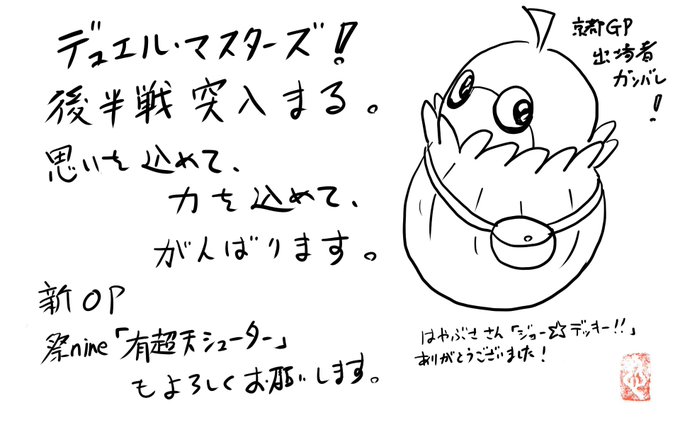 デュエル・マスターズ!
後半戦突入まる。
思いを込めて、
力を込めて、
がんばります。
新OP
祭nine「有超天シューター」
もよろしくお願いします。
京都GP
出場者
ガンバレ
!
はやぶささん「ジョー☆デッキー!!」
ありがとうございました!